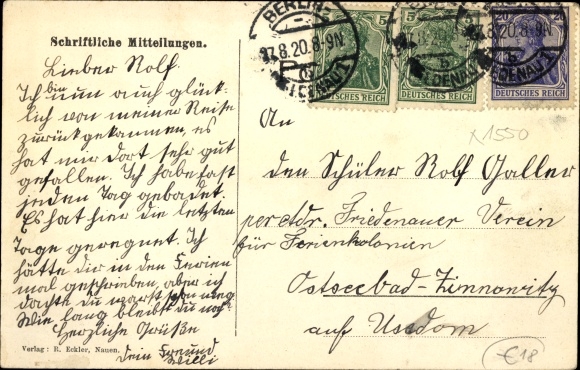 Schriftliche Mitteilungen.
Lieber Rolf.
Ich bin nun auch glück-
lich von meiner Reise
zurückgekommen, es
hat mir dort sehr gut
gefallen. Ich habe fast
jeden Tag gebadet.
Es hat hier die letzten
Tage geregnet. Ich
hätte dir in den Ferien
mal geschrieben, aber ich
dachte du warst schon weg
Wie lang bleibst du noch
Herzliche Grüße
Dein Freund
Willi
Verlag: R. Eckler, Nauen.
BERLIN
17.8.20.8-9N
b
FRIEDENAU 1
5
DEUTSCHES REICH
5
DEUTSCHES REICH
17.8.20.8-9N
b
EDENAU 1
20
20
DEUTSCHES REICH
An
x1550
den Schüler Rolf Galler
per Adr. Friedenauer Verein
für Ferienkolonien
Ostseebad-Zinnowitz
auf Usedom
€18